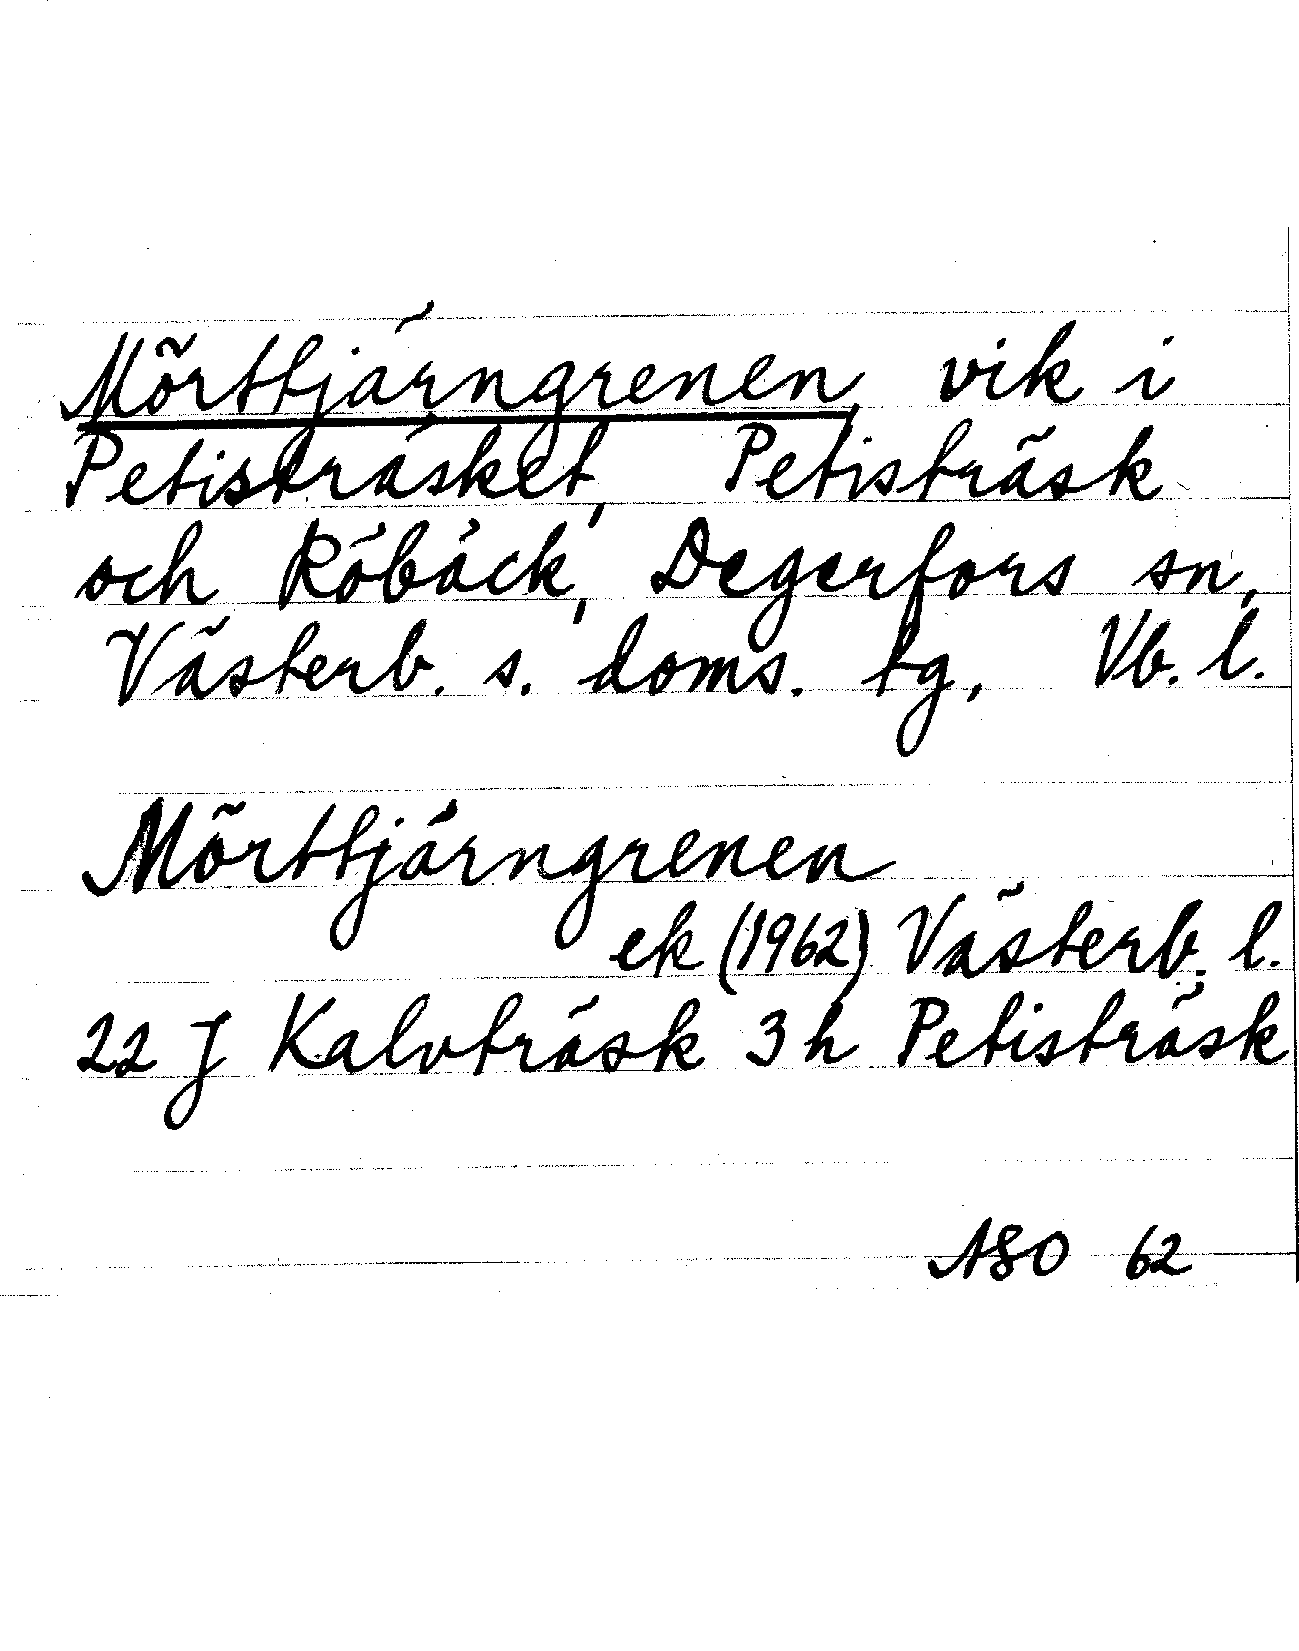 Mörttjärngrenen vik i
Petisträsket, Petisträsk
och Röbäck, Degerfors sn,
Västerb. s. doms. tg, Vb. l.
Mörttjärngrenen
ek (1962) Västerb. l.
22 J Kalvträsk 3 h Petisträsk
ASO 62